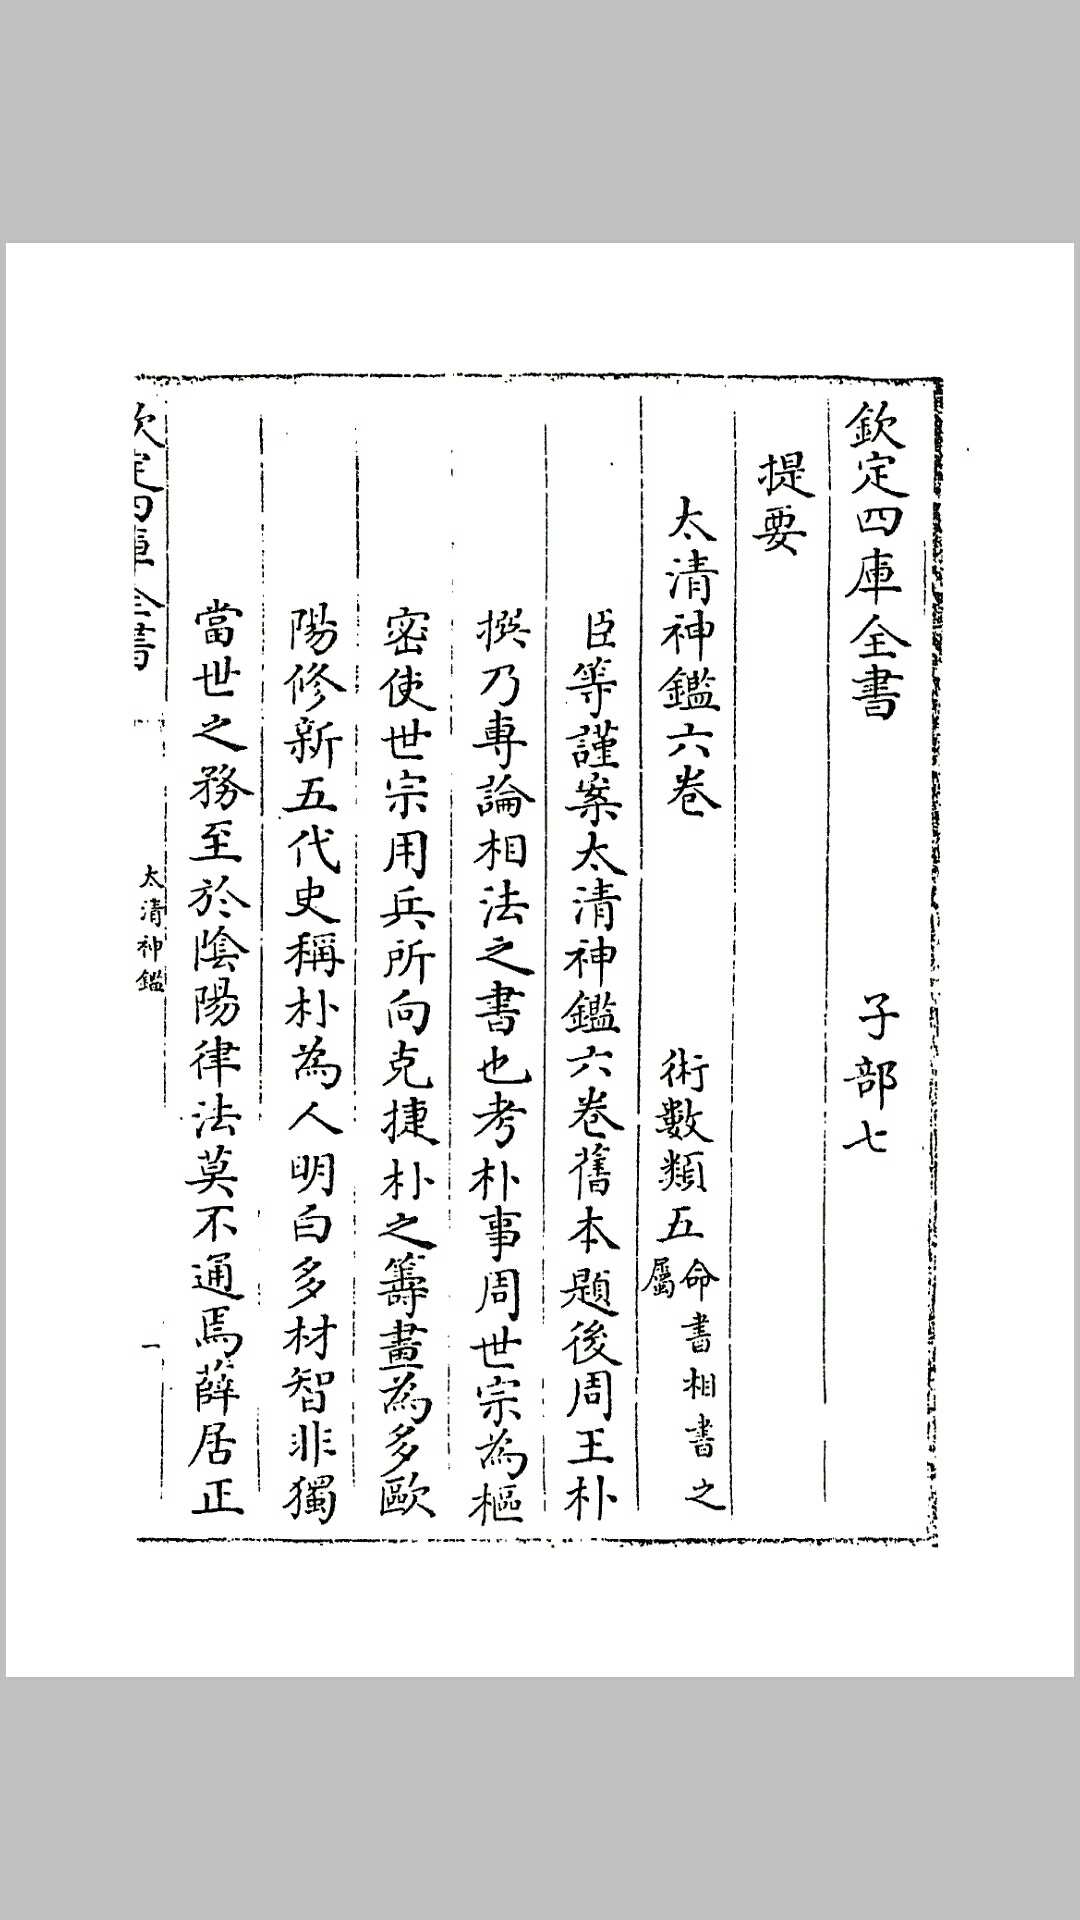 欽定四庫全書 子部七
提要
太清神鑑六卷 術數類五 命書相書之屬
臣等謹案太清神鑑六卷舊本題後周王朴
撰乃專論相法之書也考朴事周世宗為樞
密使世宗用兵所向克捷朴之籌畫為多歐
陽修新五代史稱朴為人明白多材智非獨
當世之務至於陰陽律法莫不通焉薛居正
欽定四庫全書 太清神鑑 一